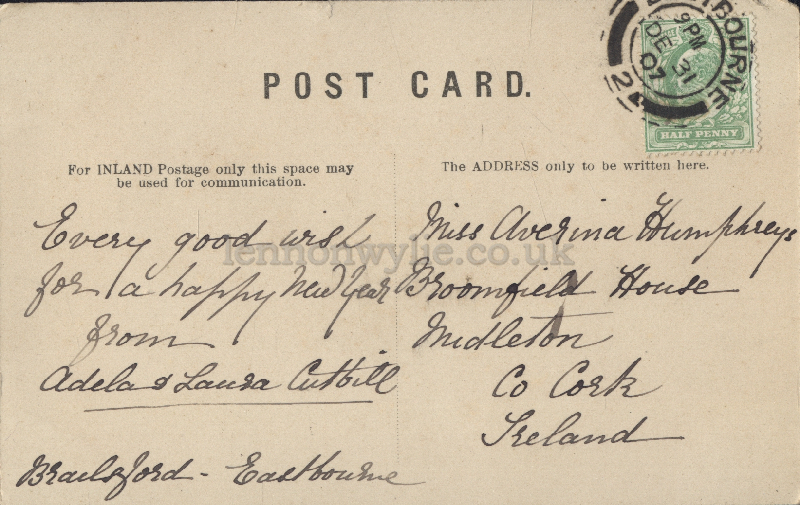 POST CARD.
EASTBOURNE
9 PM
DE 31
07
2
HALF PENNY
For INLAND Postage only this space may
be used for communication.
The ADDRESS only to be written here.
Every good wish
for a happy New Year
from
Adela & Laura Cutbill
Brailsford - Eastbourne
Miss Averina Humphreys
Broomfield House
Midleton
Co Cork
Ireland
lennonwylie.co.uk